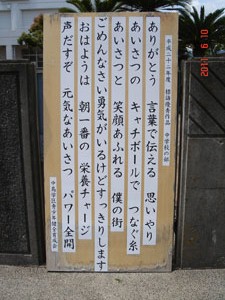 平成二十三年度 標語優秀作品 中学校の部
ありがとう 言葉で伝える 思いやり
あいさつの キャッチボールで つなぐ糸
あいさつと 笑顔あふれる 僕の街
ごめんなさい勇気がいるけどすっきりします
おはようは 朝一番の 栄養チャージ
声だすぞ 元気なあいさつ パワー全開